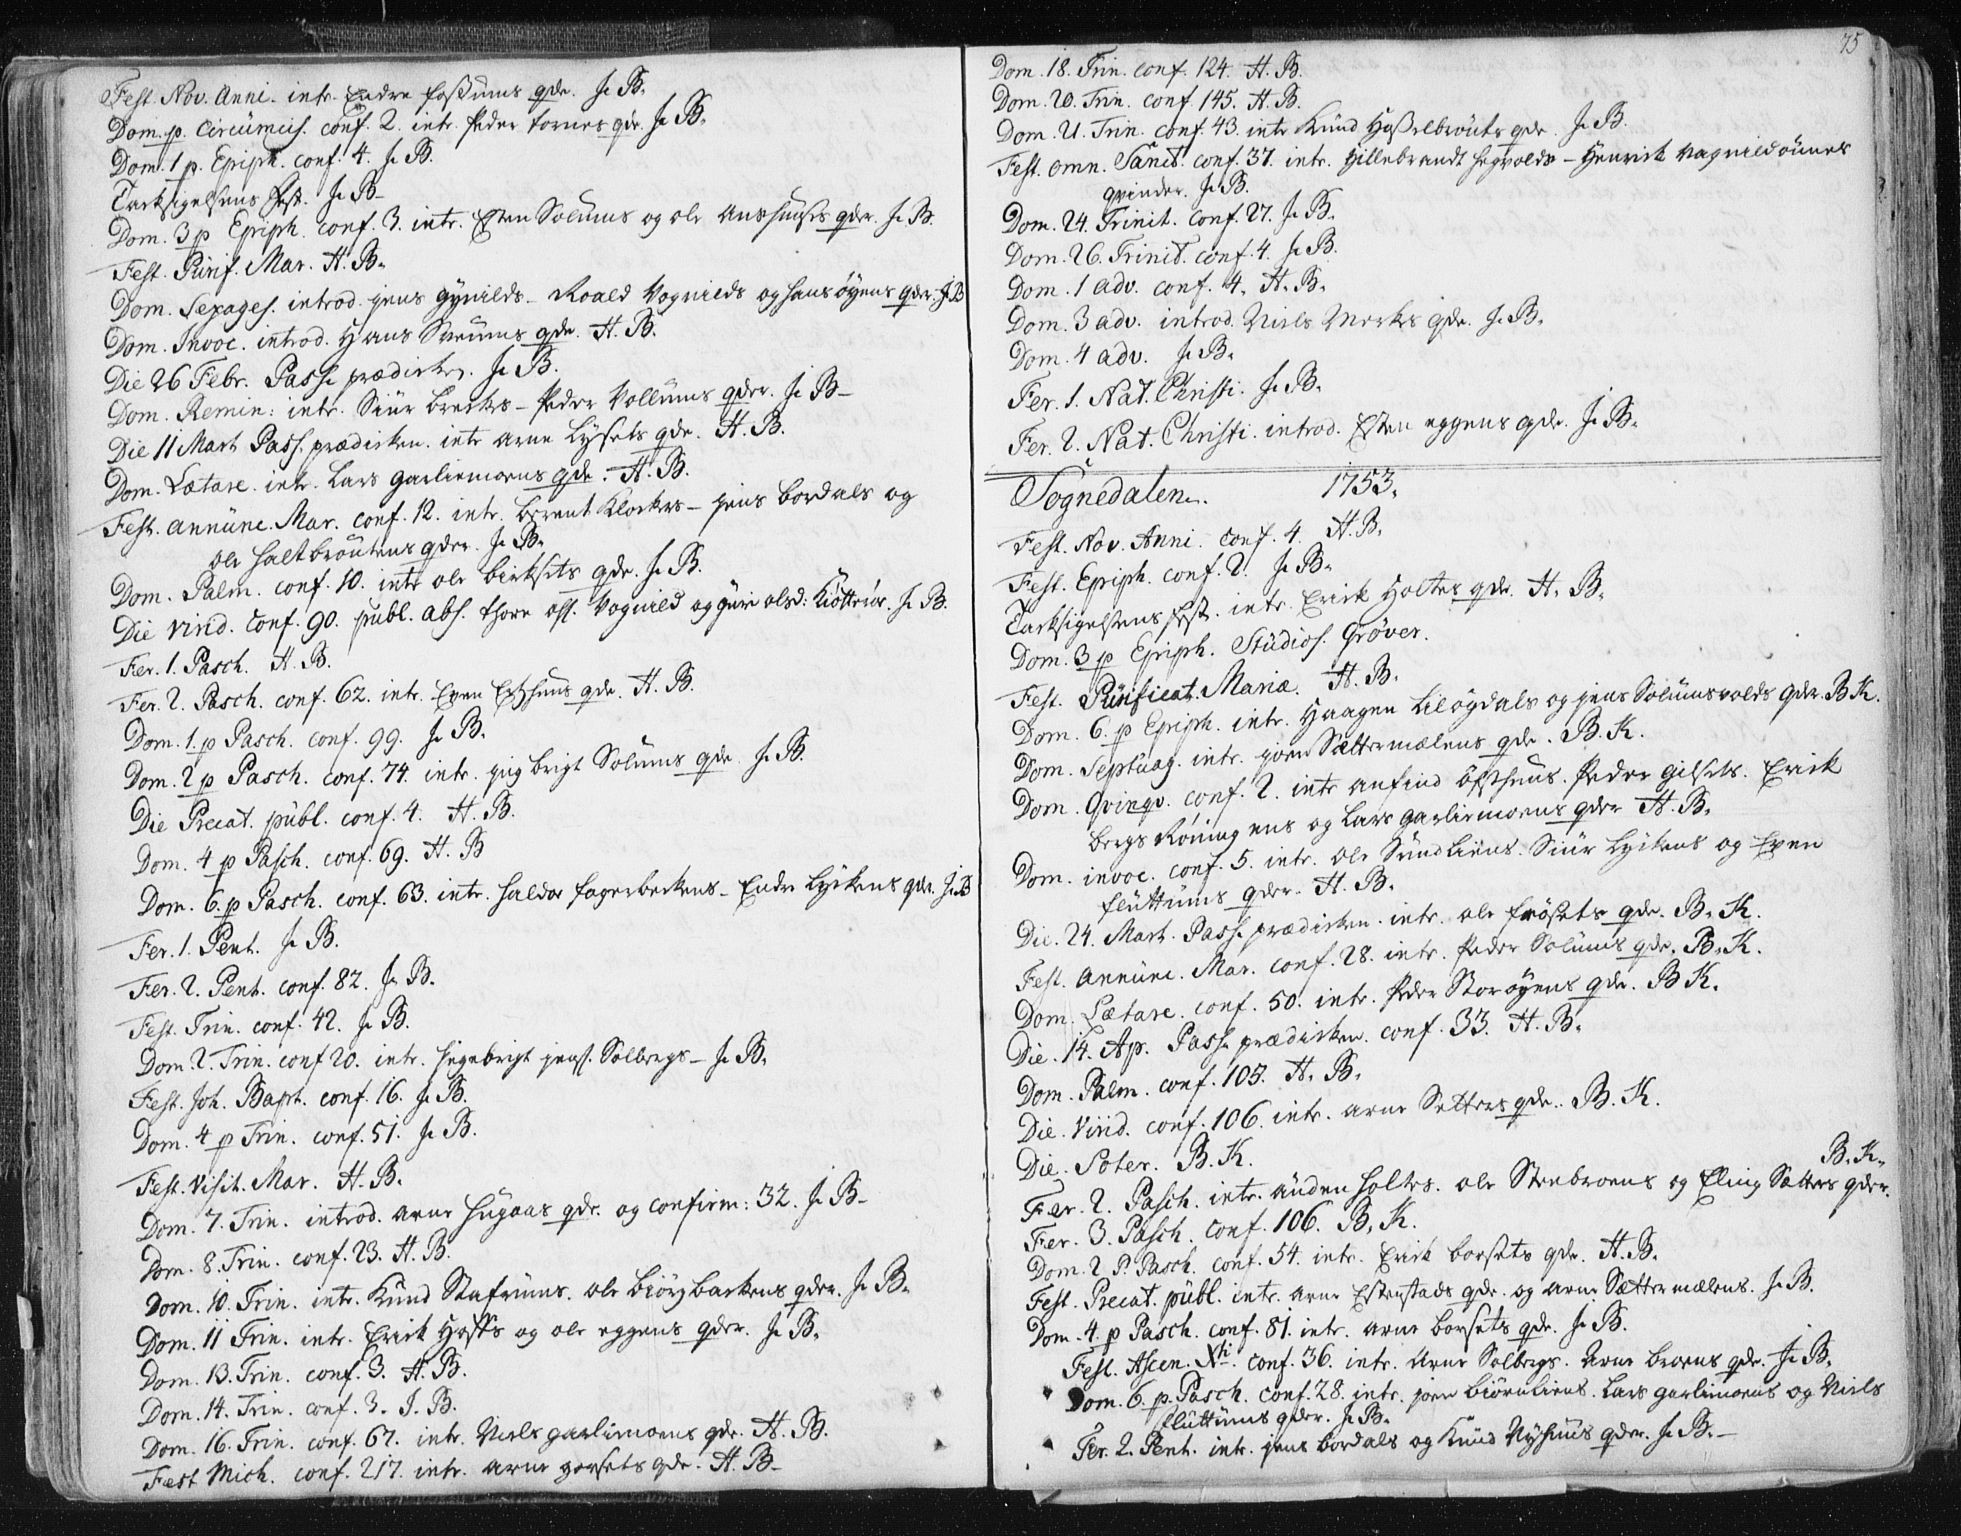 Fest. Nov. Anni. intr. Endre foßums qde. J. B.
Dom. p. Circumcis. conf. 2. intr. Peder tornes qde. J. B.
Dom. 1 p. Epiph. conf. 4. J. B.
Tacksigelsens fest. J. B.
Dom. 3 p Epiph. conf. 3. intr. Esten Solums og ole Aushuus qder. J. B.
Fest. Purif. Mar. H. B.
Dom. Sexages. introd. jens gynilds - Roald Vognilds og hans öyens qder. J. B
Dom. Invoc. introd. Hans Sveums qde. H. B.
Die 26 Febr. Pass. prædicken. J. B.
Dom. Remin: intr. Siur breckes - Peder Vollums qder. J. B.
Die 11 Mart Pass. prædicken. intr arne Lysets qde. H. B.
Dom. Lætare. intr. Lars garliemoens qde. H. B.
Fest. annunc. Mar. conf. 12. intr. berent Klockers - jens bordals og
ole haltbroutens qder. J. B.
Dom. Palm. conf. 10. intr ole birksets qde. J. B.
Die Virid. conf. 90. publ. abs. thore ols. Vognild og guri olsd: Kiötterör. J. B.
Fer. 1. Pasch. H. B.
Fer. 2. Pasch. conf. 62. intr. Even Efshuus qde. H. B.
Dom. 1. p Pasch. conf. 99. J. B.
Dom. 2 p Pasch. conf. 74. intr. ingbrigt Solums qde. J. B.
Die Precat. publ. conf. 4. H. B.
Dom. 4 p Pasch. conf. 69. H. B
Dom. 6. p Pasch. conf. 63. intr. haldor fagerbeckens - Endre Lyckens qde. J. B
Fer. 1. Pent. J. B.
Fer. 2. Pent. conf. 82. J. B.
Fest. Trin. conf. 42. J. B.
Dom. 2. Trin. conf 20. intr. Ingebrigt jens. Solbergs - J. B.
Fest. Joh. Bapt. conf. 16. J. B.
Dom. 4 p Trin. conf. 51. J. B.
Fest. Visit. Mar. H. B.
Dom. 7. Trin. introd. arne hugaas qde. og confirm: 32. J. B.
Dom. 8. Trin. conf. 23. H. B.
Dom. 10. Trin. intr. Knud Stafrums. ole biörgbackens qder. J. B.
Dom. 11 Trin. intr. Erick Hoffs og ole eggens qder. J. B.
Dom. 13. Trin. conf. 3. H. B.
Dom. 14. Trin. conf. 3. J. B.
Dom. 16. Trin. conf. 67. intr. Niels garliemoens qde. H. B.
Fest Mich. conf. 217. intr. arne gorsets qde. H. B.
75
Dom. 18. Trin. conf. 124. H. B.
Dom. 20. Trin. conf. 145. H. B.
Dom. 21. Trin. conf. 43. intr Knud Haßelbroutes qde. J. B.
Fest. omn. Sanct. conf. 37. intr. Hillebrandt hegvolds - Henrich Vagnildöunes
qvinder. J. B.
Dom. 24. Trinit. conf. 27. J. B.
Dom. 26. Trinit. conf. 4. J. B.
Dom. 1 adv. conf. 4. H. B.
Dom. 3 adv. introd. Niels Merkes qde. J. B.
Dom. 4 adv. J. B.
Fer. 1. Nat. Christi. J. B.
Fer. 2. Nat. Christi. introd. Esten eggens qde. J. B.
Sognedalen. 1753.
Fest. Nov. Anni. conf. 4. H. B.
Fest. Epiph. conf. 2. J. B.
Tacksigelsens fest. intr. Erick Holtes qde. H. B.
Dom. 3 p Epiph. Studios. Gröver.
Fest. Purificat. Mariæ. H. B.
Dom. 6. p Epiph. intr. Haagen Lilögdals og jens Solumsvolds qder. B. K.
Dom. Septuag. intr. joen Sættermælens qde. B. K.
Dom. Qvinqv. conf. 2. intr anfind öfsthuus. Peder gilsets. Erick
bergs Röning ens og Lars garliemoens qder H. B.
Dom. invoc. conf. 5. intr. ole Sundliens. Siur Lyckens og Even
fluttums qder. H. B.
Die. 24. Mart. Pass. prædicken. intr. ole frösets qde. B. K.
Fest. Annunc. Mar. conf. 28. intr. Peder Solums qde. B. K.
Dom. Lætare. conf. 50. intr. Peder Storöyens qde. B K.
Die. 14. Ap. Pass. prædicken. conf. 33. H. B.
Dom. Palm. conf. 105. H. B.
Die. Virid. conf. 106. intr. arne Setters qde. B. K.
Die. Soter. B. K.
Fer. 2. Pasch. intr. auden holtes. ole Stenbroens og Eling Sætters qder. B. K.
Fer. 3. Pasch. conf. 106. B. K.
Dom. 2 P. Pasch. conf. 54. intr. Erick borsets qde. H. B.
Fest. Precat. publ. intr. arne Estenstads qde. og arne Sættermælens. J. B.
Dom. 4. p Pasch. conf. 81. intr. arne borsets qde. J. B.
Fest. Ascen. Xti. conf. 36. intr. Arne Solbergs. Arne broens qde. J. B.
Dom. 6. p. Pasch. conf. 28. intr. joen biörnliens. Lars garlimoens og Niels
fluttums qder. J. B.
Fer. 2. Pent. intr. jens bordals og Knud Nyhuus qder. J. B. -